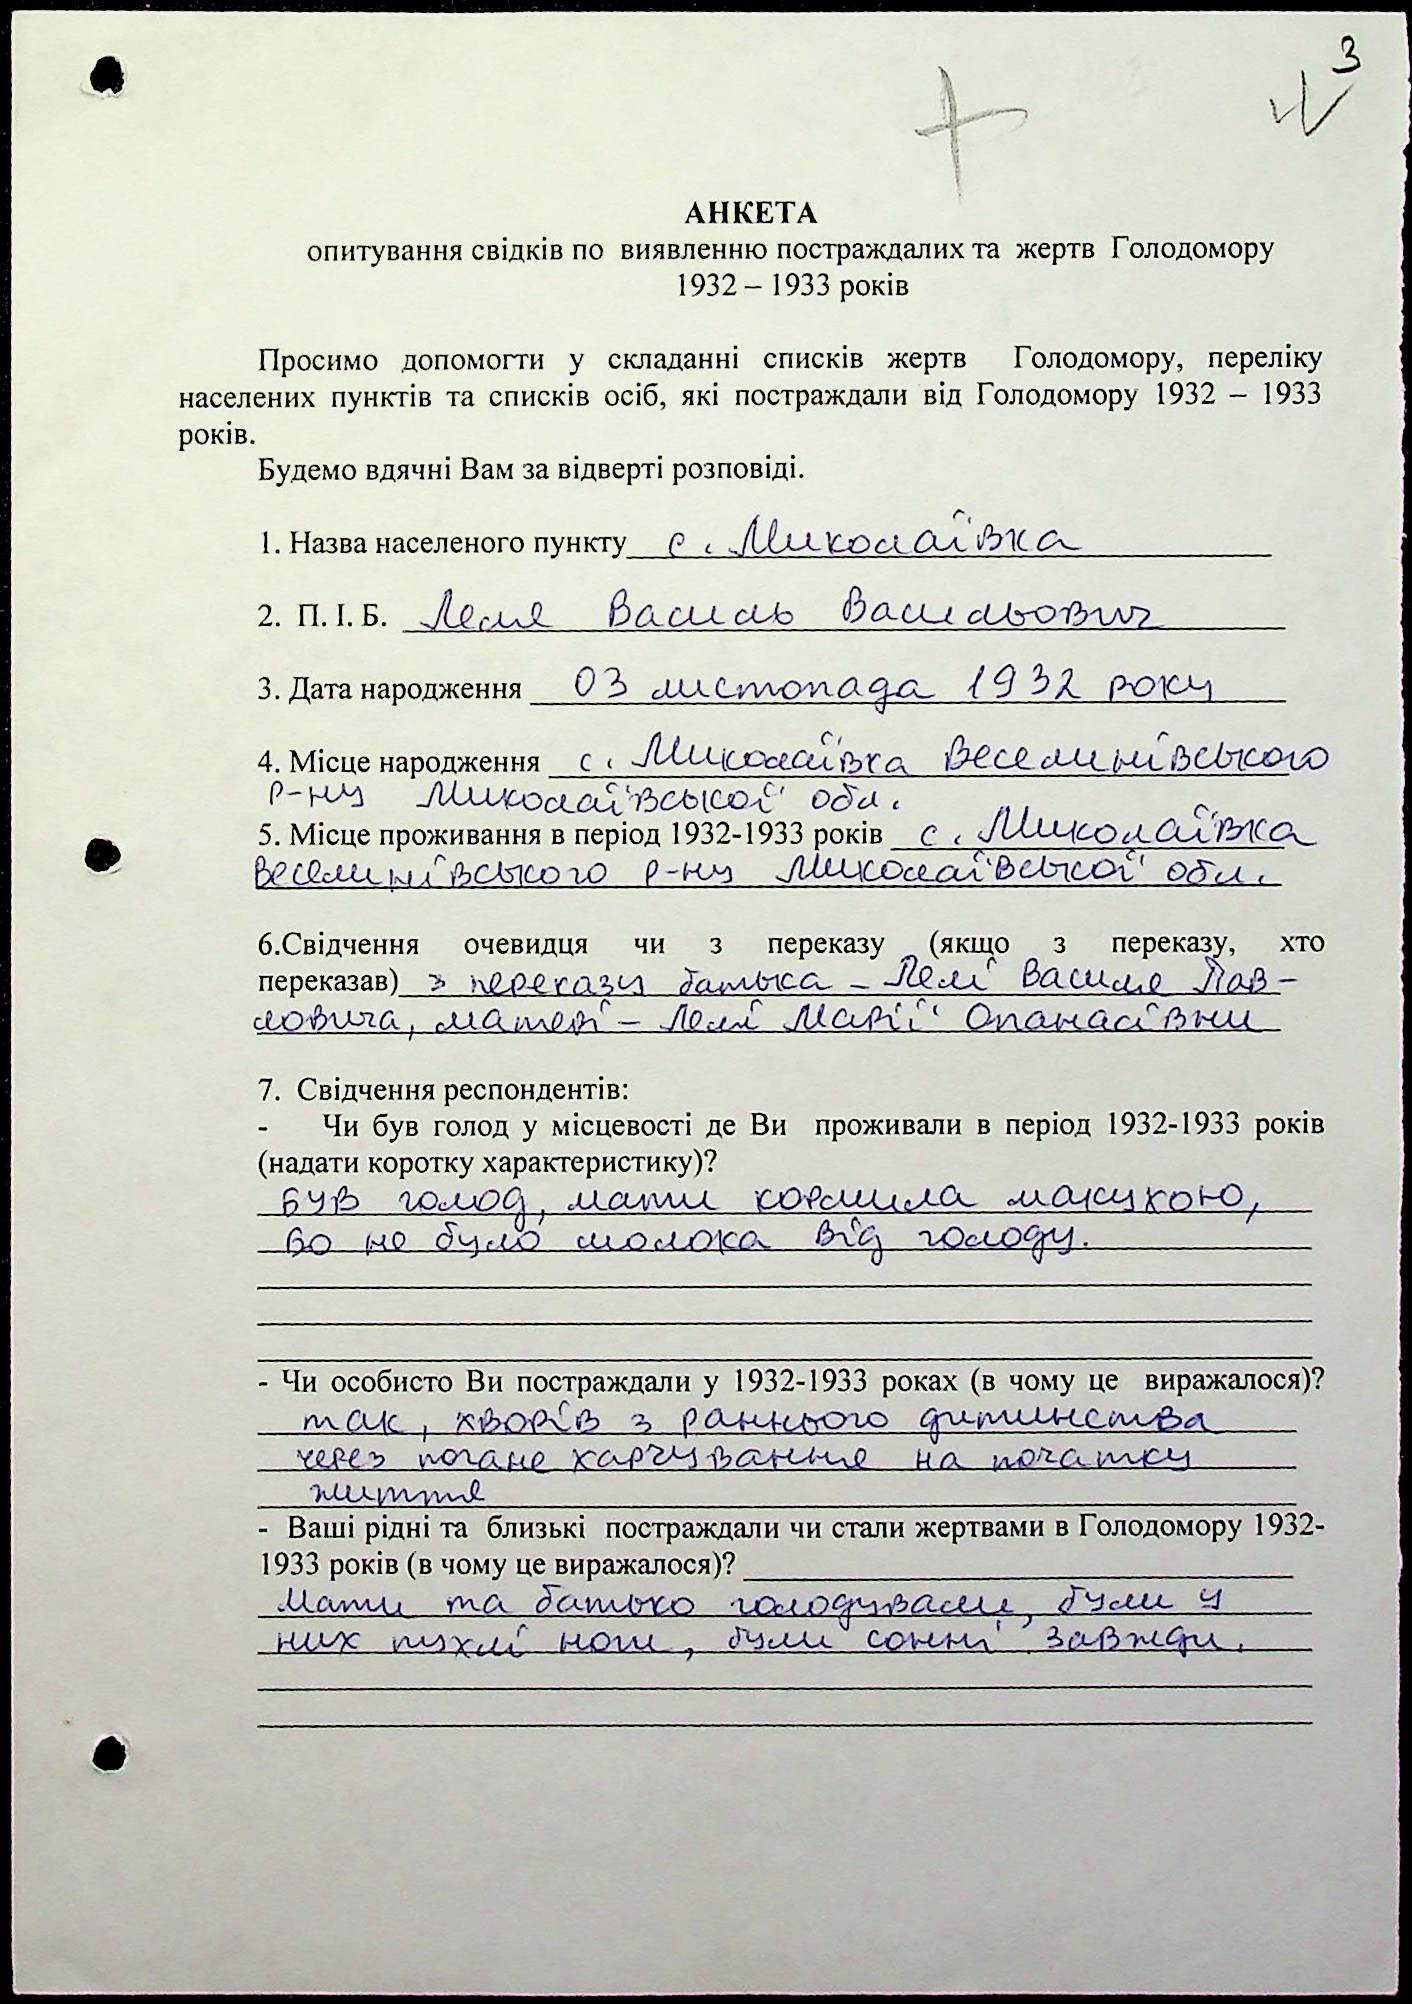 3
АНКЕТА
опитування свідків по виявленню постраждалих та жертв Голодомору
1932 – 1933 років
Просимо допомогти у складанні списків жертв Голодомору, переліку
населених пунктів та списків осіб, які постраждали від Голодомору 1932 – 1933
років.
Будемо вдячні Вам за відверті розповіді.
1. Назва населеного пункту с. Миколаївка
2. П. І. Б. Леля Василь Васильович
3. Дата народження 03 листопада 1932 року
4. Місце народження с. Миколаївка Веселинівського
р-ну Миколаївської обл.
5. Місце проживання в період 1932-1933 років с. Миколаївка
Веселинівського р-ну Миколаївської обл.
6.Свідчення очевидця чи з переказу (якщо з переказу, хто
переказав) з переказу батька – Лелі Василя Пав-
ловича, матері – Лелі Марії Опанасівни
7. Свідчення респондентів:
- Чи був голод у місцевості де Ви проживали в період 1932-1933 років
(надати коротку характеристику)?
був голод, мати кормила макухою,
бо не було молока від голоду.
- Чи особисто Ви постраждали у 1932-1933 роках (в чому це виражалося)?
так, хворів з раннього дитинства
через погане харчування на початку
життя
- Ваші рідні та близькі постраждали чи стали жертвами в Голодомору 1932-
1933 років (в чому це виражалося)?
Мати та батько голодували, були у
них пухлі ноги, були сонні завжди.